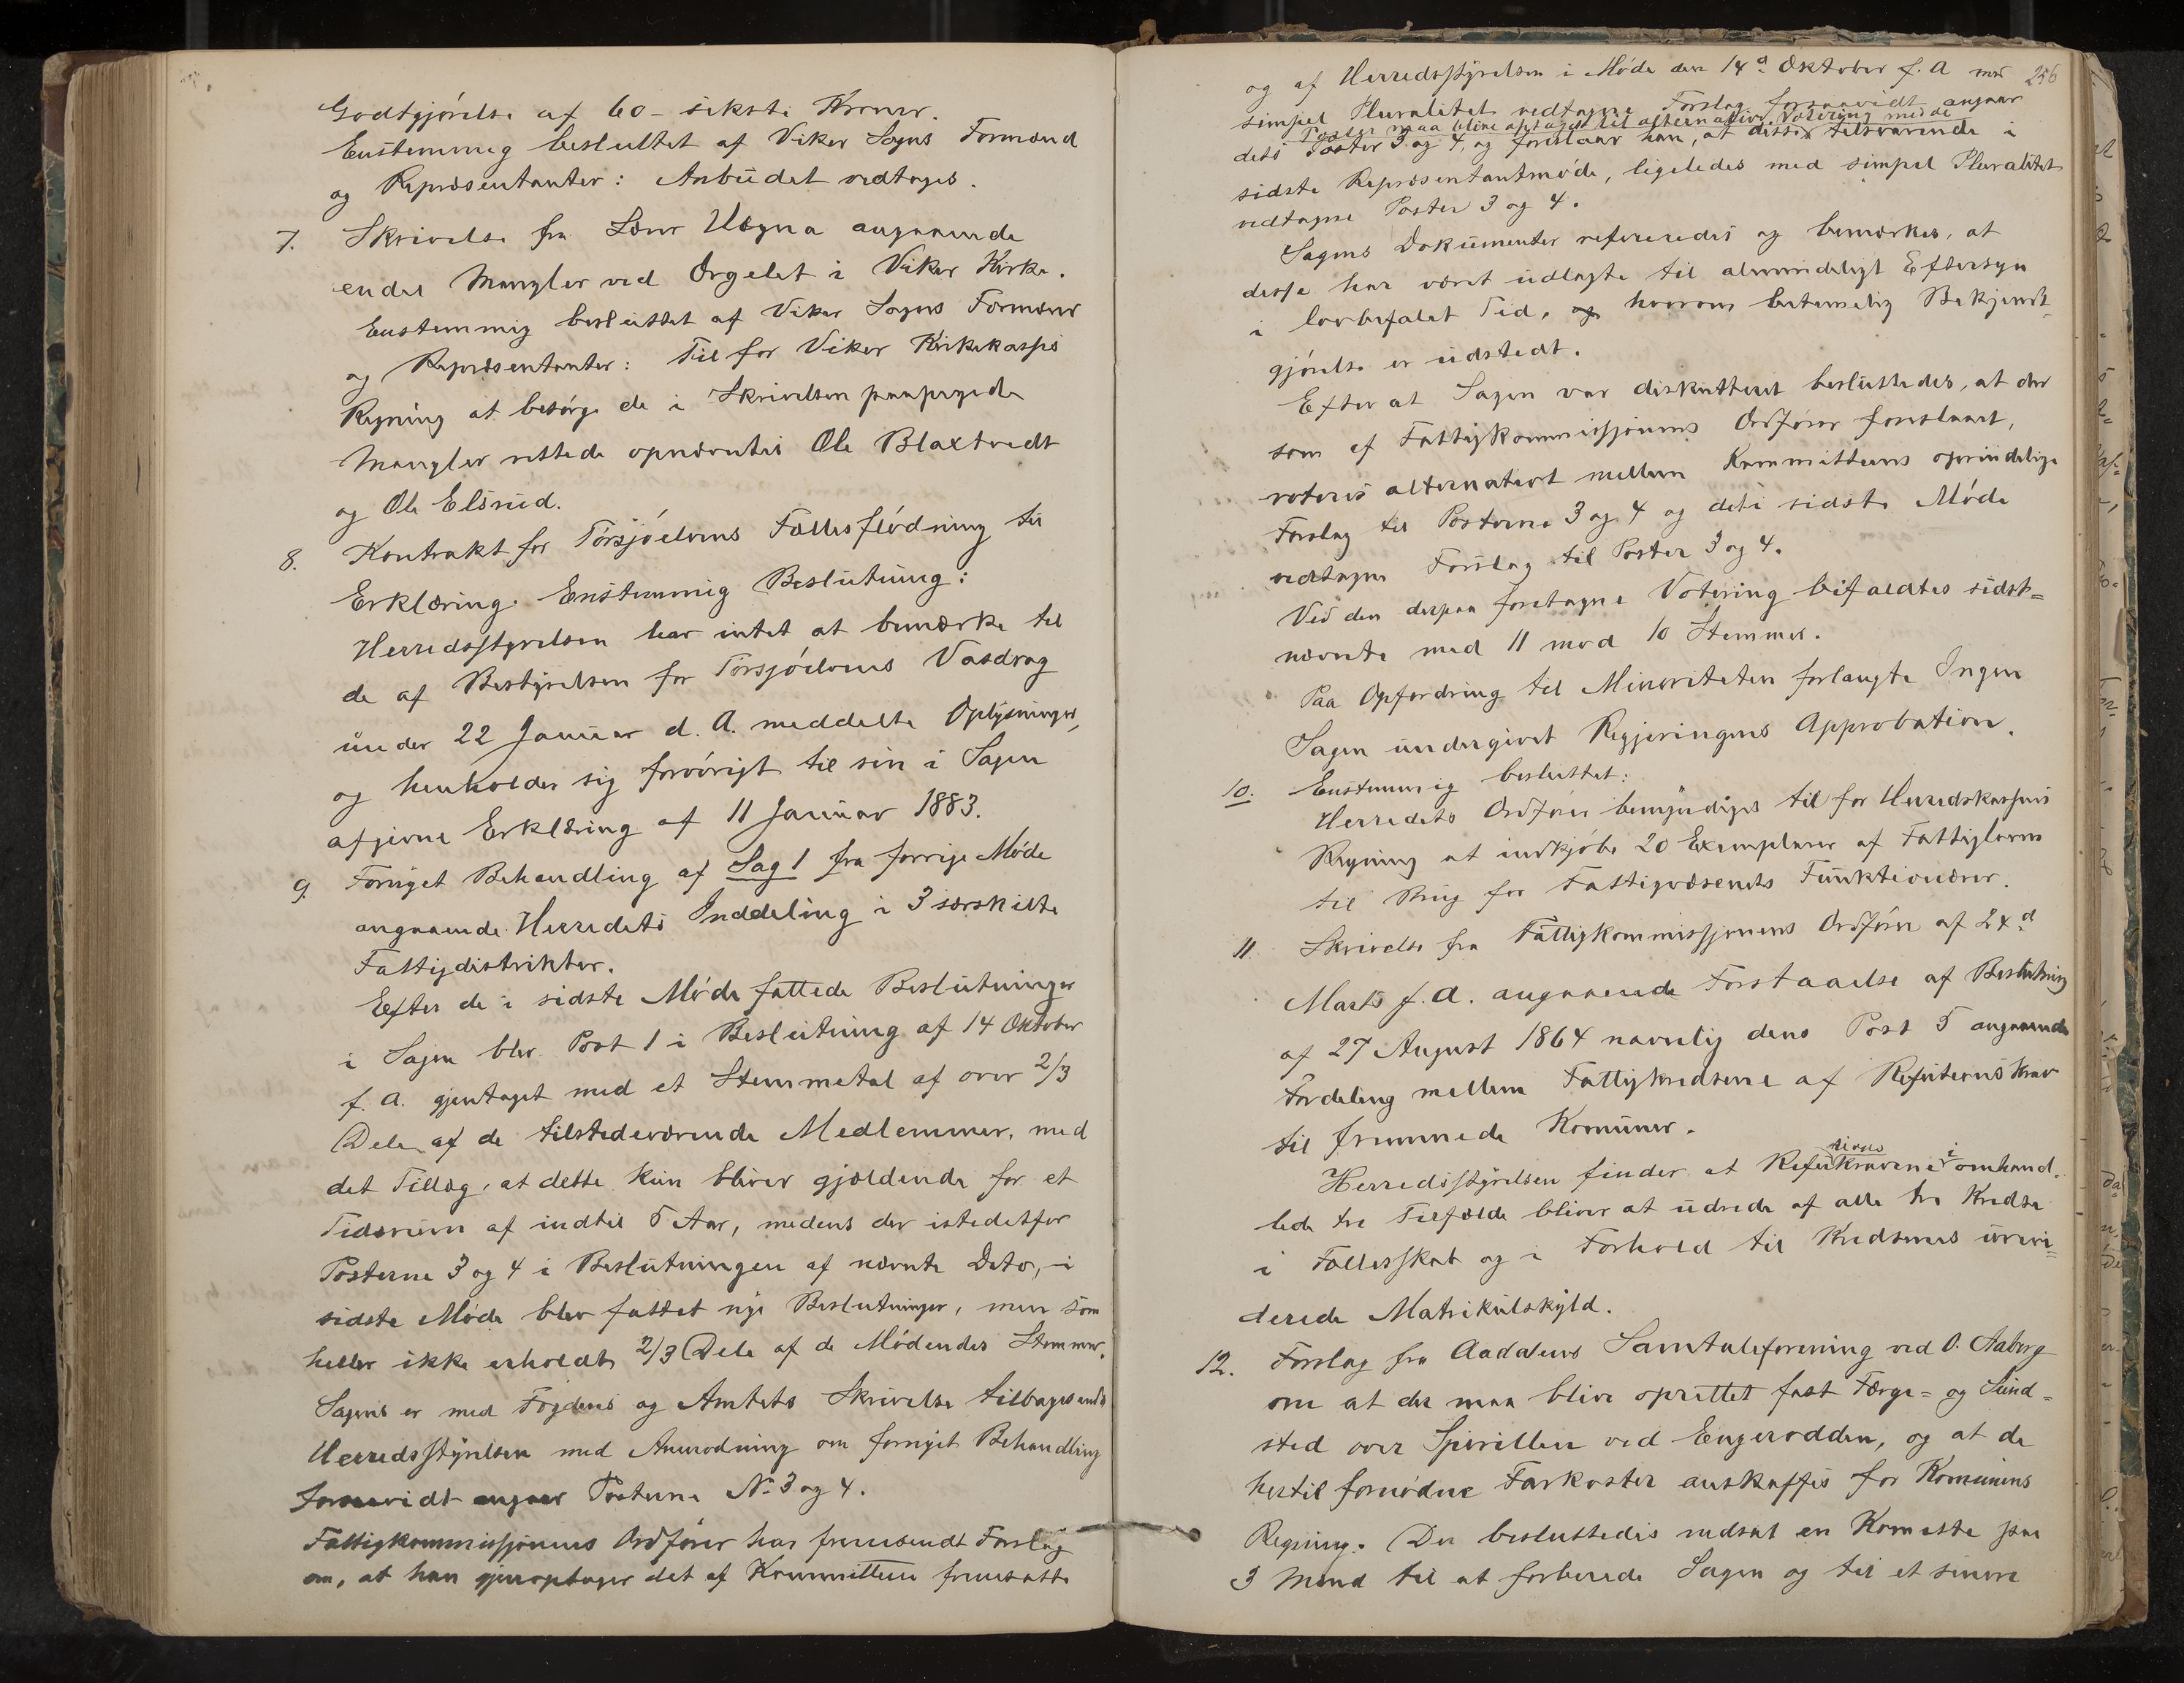 Godtgjörelse af 60 - seksti Kroner.
Enstemmig besluttet af Viker Sogns Formænd
og Repræsentanter: Anbudet vedtages.
7. Skrivelse fra Lærer Hægna angaaende
endel Mangler ved Orgelet i Viker Kirke.
Enstemmig besluttet af Viker Sogns Formænd
og Repræsentanter: Til for Viker Kirkekasses
Regning at besörge de i Skrivelsen paapegede
Mangler rettede opnævntes Ole Blaxtvedt
og Ole Elsrud.
8. Kontrakt for Törsjöelvens Fællesflödning til
Erklæring. Enstemmig Beslutning:
Herredsstyrelsen har intet at bemærke til
de af Bestyrelsen for Törsjöelvens Vasdrag
under 22 Januar d. A. meddelte Oplysninger,
og henholder sig forövrigt til sin i Sagen
afgivne Erklæring af 11 Januar 1883.
9. Fornyet Behandling af Sag 1 fra forrige Möde
angaaende Herredets Inddeling i 3 særskilte
Fattigdistrikter.
Efter de i sidste Möde fattede Beslutninger
i Sagen blev Post 1 i Beslutning af 14 Oktober
f. A. gjentaget med et Stemmetal af over 2/3
Dele af de tilstedeværende Medlemmer, med
det Tillæg, at dette kun bliver gjældende for et
Tidsrum af indtil 5 Aar, medens der istedetfor
Posterne 3 og 4 i Beslutningen af nævnte Dato, i
sidste Möde blev fattet nye Beslutninger, men som
heller ikke erholdt 2/3 Dele af de Mödendes Stemmer.
Sagens er med Fogdens og Amtets Skrivelse tilbagesendt
Herredsstyrelsen med Anmodning om fornyet Behandling
forsaavidt angaar Posterne No 3 og 4.
Fattigkommissjonens Ordförer har fremsendt Forslag
om, at han gjenoptager det af Kommitteen fremsatte
256
og af Herredsstyrelsen i Möde den 14d Oktober f. A med
simpel Pluralitet vedtagne Forslag forsaavidt angaar
Poster maa blive optaget til alternativ Votering med de
dets Poster 3 og 4, og foreslaar han, at disse tilsvarende i
sidste Repræsentantmöde, ligeledes med simpel Pluralitet
vedtagne Poster 3 og 4.
Sagens Dokumenter refereredes og bemærkes, at
desse har været udlagte til almindeligt Eftersyn
i lovbefalet Tid, hvorom betimelig Bekjendt-
gjörelse er udstedt.
Efter at Sagen var diskutteret besluttedes, at der
som af Fattigkommissjonens Ordförer foreslaaet,
voteres alternativt mellem Kommitteens oprindelige
Forslag til Posterne 3 og 4 og det i sidste Möde
vedtagne Forslag til Poster 3 og 4.
Ved den derpaa foretagne Votering bifaldtes sidst=
nævnte med 11 mod 10 Stemmer.
Paa Opfordring til Minoriteten forlangte Ingen
Sagen undergivet Regjeringens Approbation.
10. Enstemmig besluttet:
Herredets Ordförer bemyndiges til for Herredskassens
Regning at indkjöbe 20 Exemplarer af Fattigloven
til Brug for Fattigvæsenets Funktionærer.
11 Skrivelse fra Fattigkommissjonens Ordförer af 24d
Marts f. A. angaaende Forstaaelse af Beslutning
af 27 August 1864 navnlig dens Post 5 angaaende
Fordeling mellem Fattigkredsene af Refusionskrav
til fremmede Komuner.
Herredsstyrelsen finder at Refusionskravene i omhand-
lede tre Tilfælde bliver at udrede af alle tre Kredse
i Fællesskab og i Forhold til Kredsenes urevi=
derede Matrikulskyld.
12. Forslag fra Aadalens Samtaleforening ved O. Aaberg
om at der maa blive oprettet fast Færge= og Sund=
sted over Spirillen ved Engerodden, og at de
hertil fornödne Farkoster anskaffes for Komunens
Regning. Der besluttedes nedsat en Komite paa
3 Mænd til at forberede Sagen og til et senere